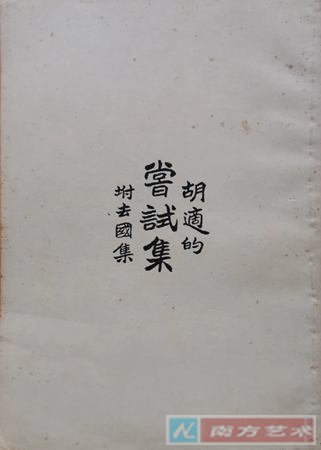 胡適的
嘗試集
坿去國集
南方艺术